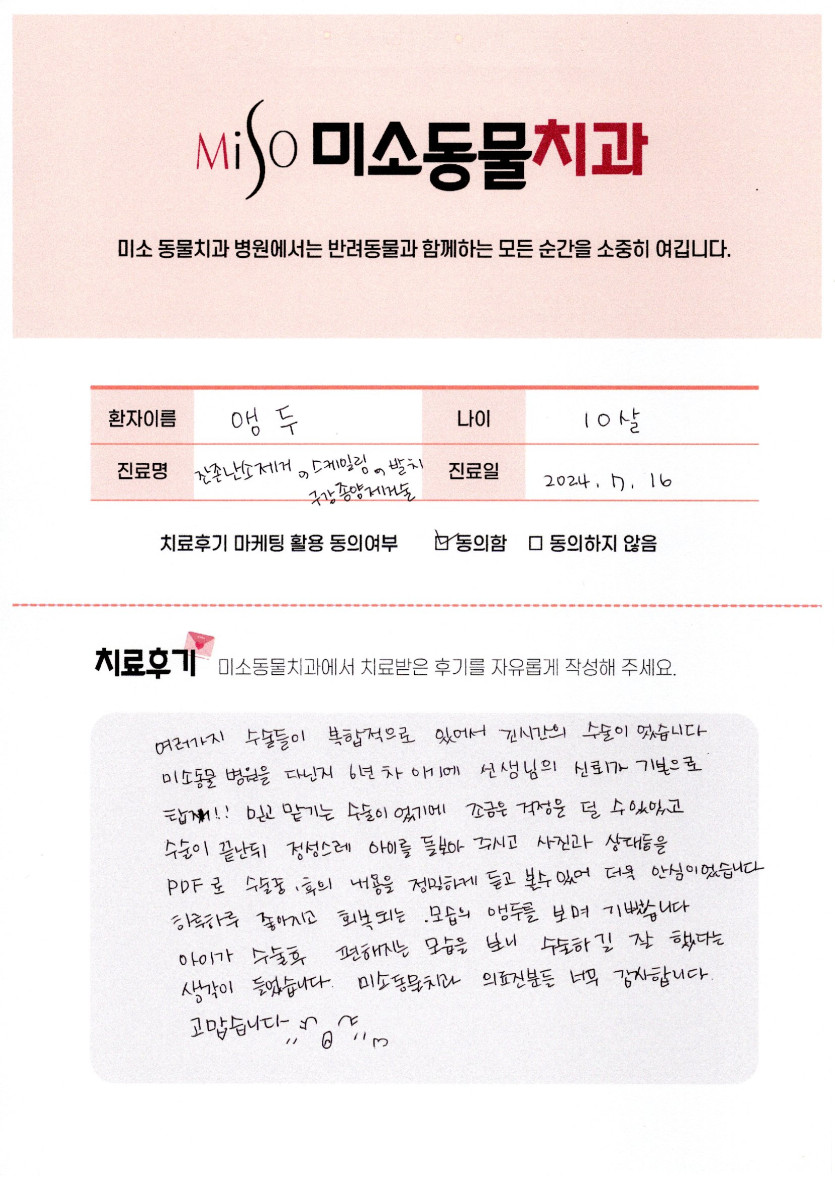 MiSO 미소동물치과
미소 동물치과 병원에서는 반려동물과 함께하는 모든 순간을 소중히 여깁니다.
환자이름 앵두 나이 10살
진료명 잔존난소제거, 스케일링, 발치 진료일 2024. 7. 16
구강종양제거술
치료후기 마케팅 활용 동의여부 ☑ 동의함 ☐ 동의하지 않음
치료후기 미소동물치과에서 치료받은 후기를 자유롭게 작성해 주세요.
여러가지 수술들이 복합적으로 있어서 긴시간의 수술이 었습니다
미소동물 병원을 다닌지 6년 차 이기에 선생님의 신뢰가 기본으로
탑재!! 믿고 맡기는 수술이 었기에 조금은 걱정을 덜 수 있었고
수술이 끝난뒤 정성스레 아이를 돌보아 주시고 사진과 상태등을
PDF로 수술중, 후의 내용을 정밀하게 듣고 볼수있어 더욱 안심이었습니다
하루하루 좋아지고 회복되는 모습의 앵두를 보며 기뻤습니다
아이가 수술후 편해지는 모습을 보니 수술하길 잘 했다는
생각이 들었습니다. 미소동물치과 의료진분들 너무 감사합니다.
고맙습니다~